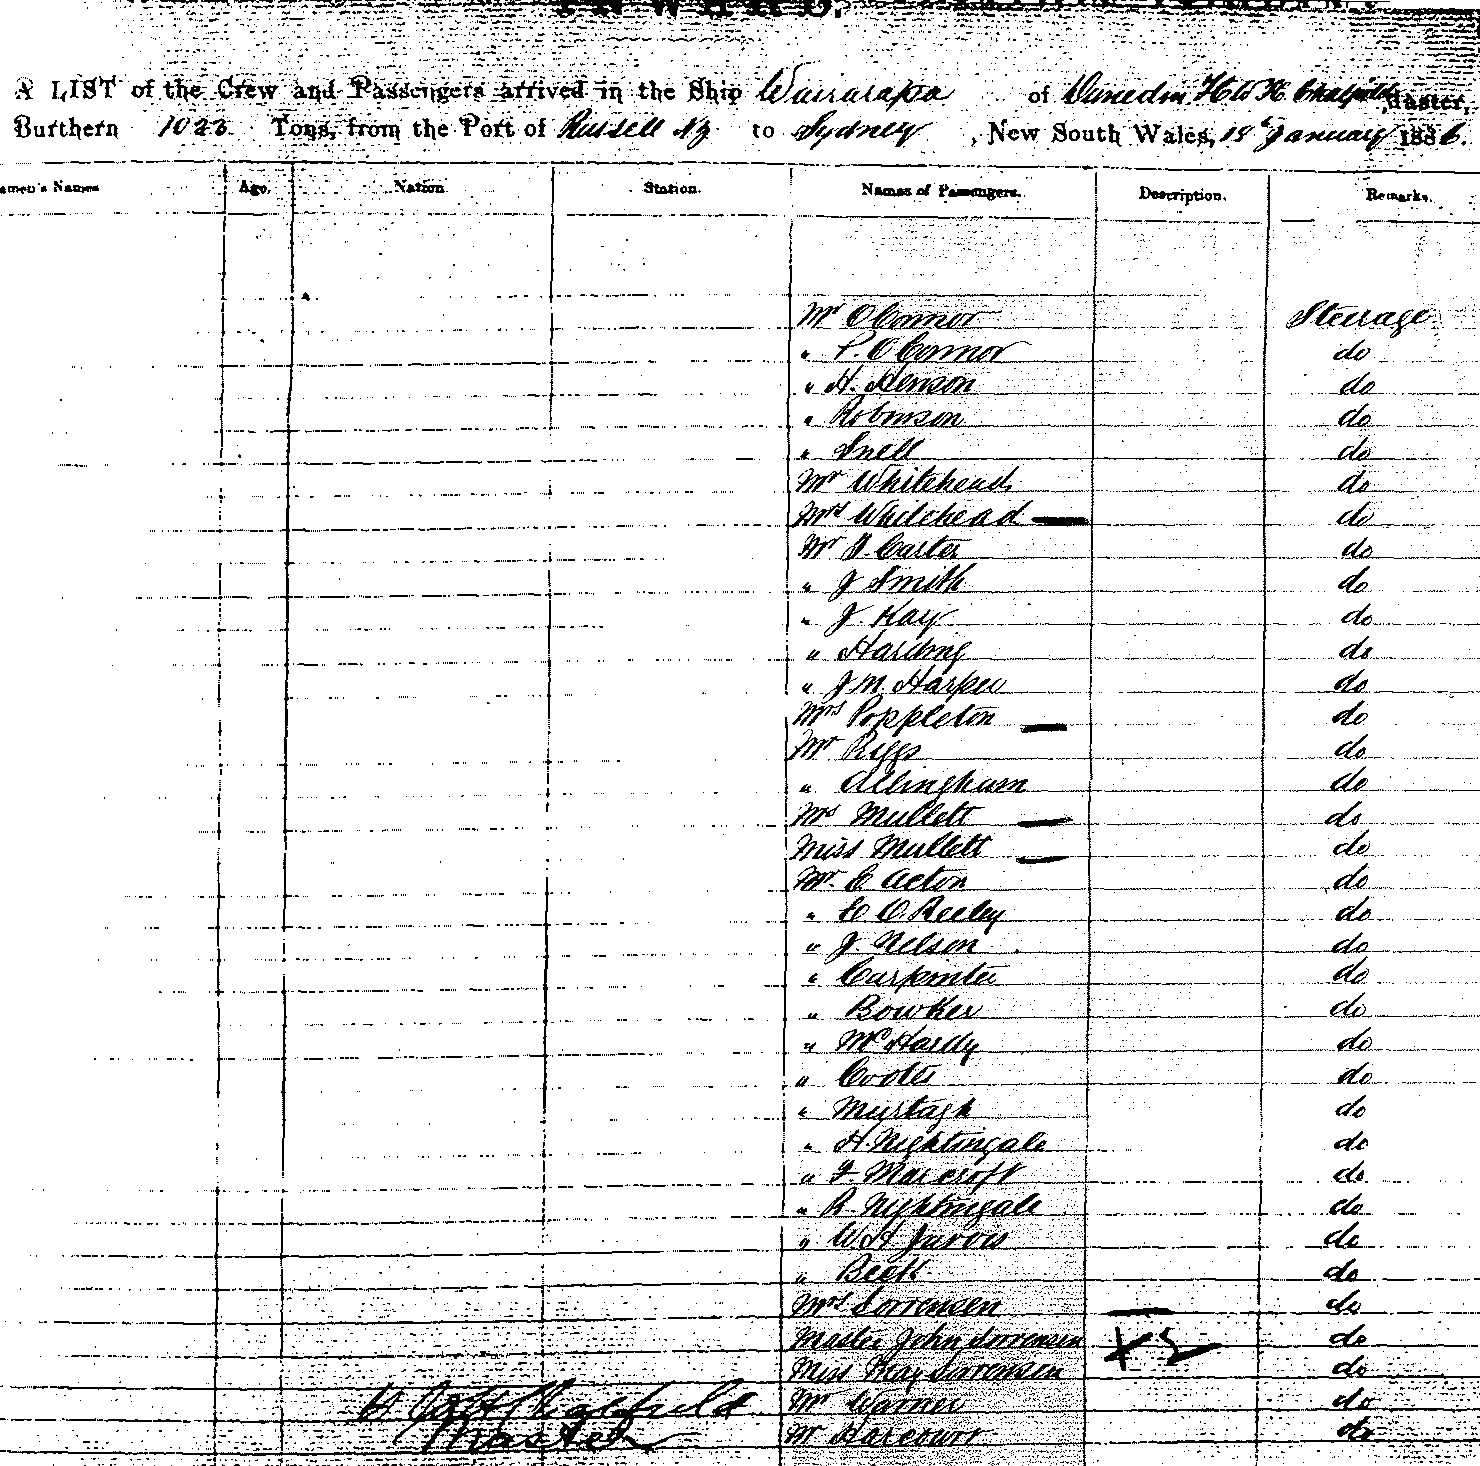 A LIST of the Crew and Passengers arrived in the Ship Wairarapa of Dunedin, Master,
Burthern 1023 Tons, from the Port of Russell NZ to Sydney, New South Wales, 18th January 1886.
amen's Names Age. Nation Station. Names of Passengers. Description. Remarks.
Mr O'Connor Steerage
" P. O'Connor do
" H. Henson do
" Robinson do
" Snell do
Mr Whitehead do
Mrs Whitehead do
Mr Carter do
" J Smith do
" J. Kay do
" Harding do
" J M Harper do
Mrs Poppleton do
Mr Riggs do
" Allingham do
Mrs Mullett do
Miss Mullett do
Mr. E Acton do
" do
" J. Nelson do
" Carpenter do
" Bowker do
" McHardy do
" Cootes do
" Murtagh do
" H. Nightingale do
" F Marcroft do
" R. Nightingale do
" W H Jarvis do
" Beck do
Mrs Sorrensen do
Master John Sorrensen do
Miss May Sorrensen do
Mr Warner do
Mr Harcourt do
Chatfield
Master